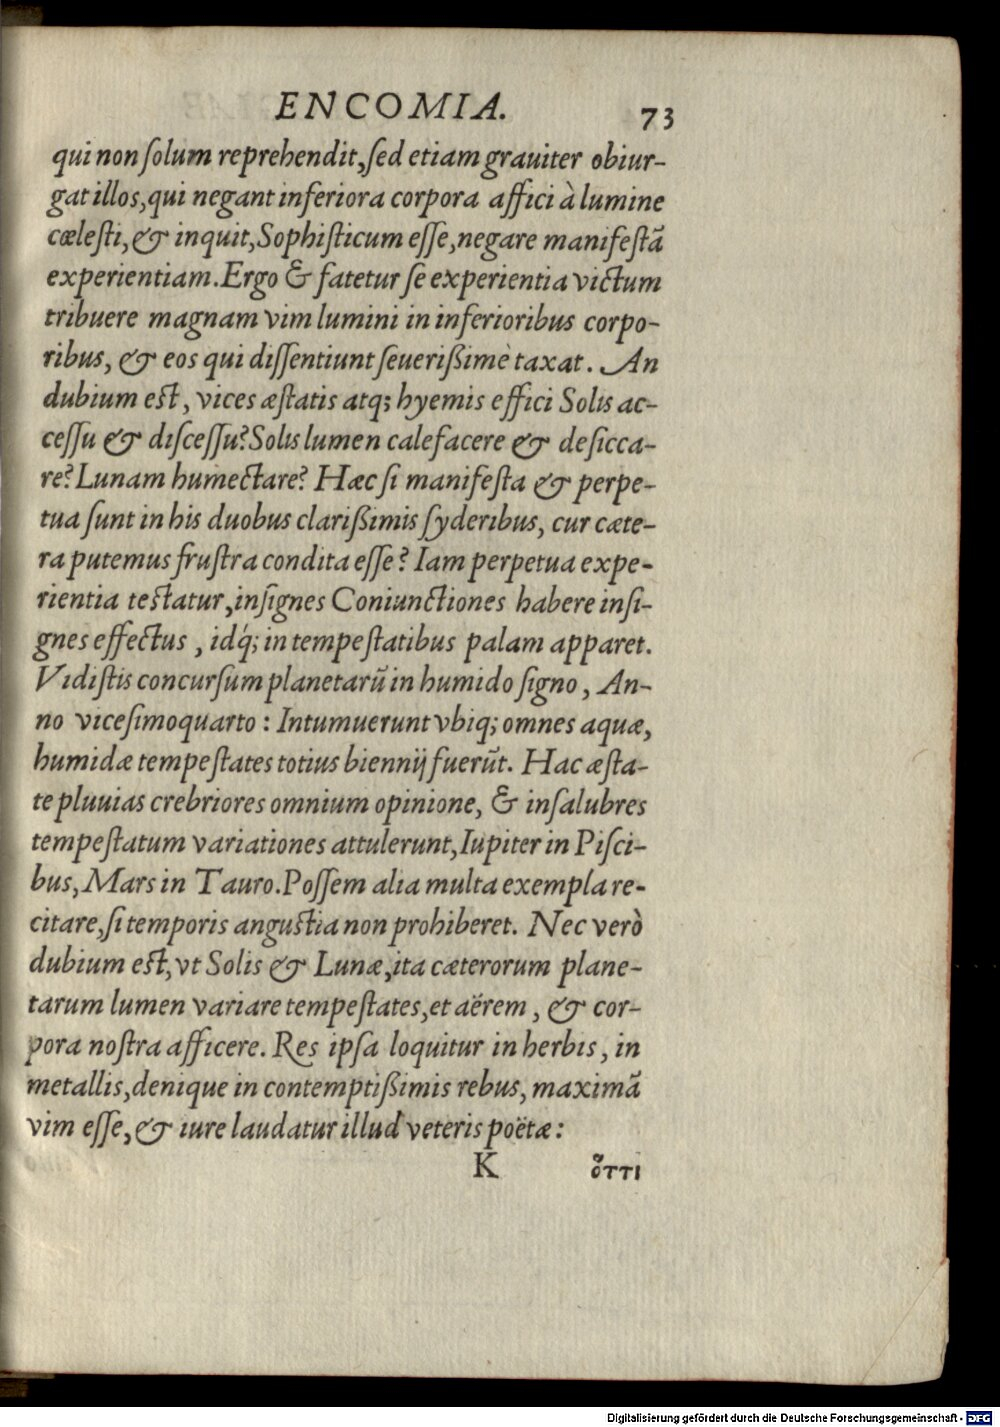 ENCOMIA. 73
qui non ſolum reprehendit, ſed etiam grauiter obiur-
gat illos, qui negant inferiora corpora affici à lumine
cæleſti, & inquit, Sophiſticum eſſe, negare manifeſtā
experientiam. Ergo & fatetur ſe experientia victum
tribuere magnam vim lumini in inferioribus corpo-
ribus, & eos qui diſſentiunt ſeuerißimè taxat. An
dubium est, vices æſtatis atq; hyemis effici Solis ac-
ceſſu & diſceſſu? Solis lumen calefacere & deſicca-
re? Lunam humectare? Hæc ſi manifeſta & perpe-
tua ſunt in his duobus clarißimis ſyderibus, cur cæte-
ra putemus fruſtra condita eſſe? Iam perpetua expe-
rientia testatur, inſignes Coniunctiones habere inſi-
gnes effectus, idq́; in tempeſtatibus palam apparet.
Vidiſtis concurſum planetarū in humido ſigno, An-
no viceſimoquarto: Intumuerunt vbiq; omnes aquæ,
humidæ tempeſtates totius biennij fuerūt. Hac æſta-
te pluuias crebriores omnium opinione, & inſalubres
tempeſtatum variationes attulerunt, Iupiter in Piſci-
bus, Mars in Tauro. Poſſem alia multa exempla re-
citare, ſi temporis angustia non prohiberet. Nec verò
dubium est, vt Solis & Lunæ, ita cæterorum plane-
tarum lumen variare tempeſtates, et aërem, & cor-
pora noſtra afficere. Res ipſa loquitur in herbis, in
metallis, denique in contemptißimis rebus, maximā
vim eſſe, & iure laudatur illud veteris poëtæ:
K ὅττι
Digitalisierung gefördert durch die Deutsche Forschungsgemeinschaft - DFG